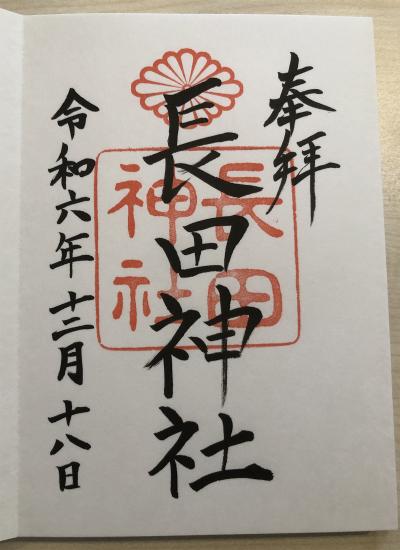 奉拝
長田神社
長田
神社
令和六年十二月十八日